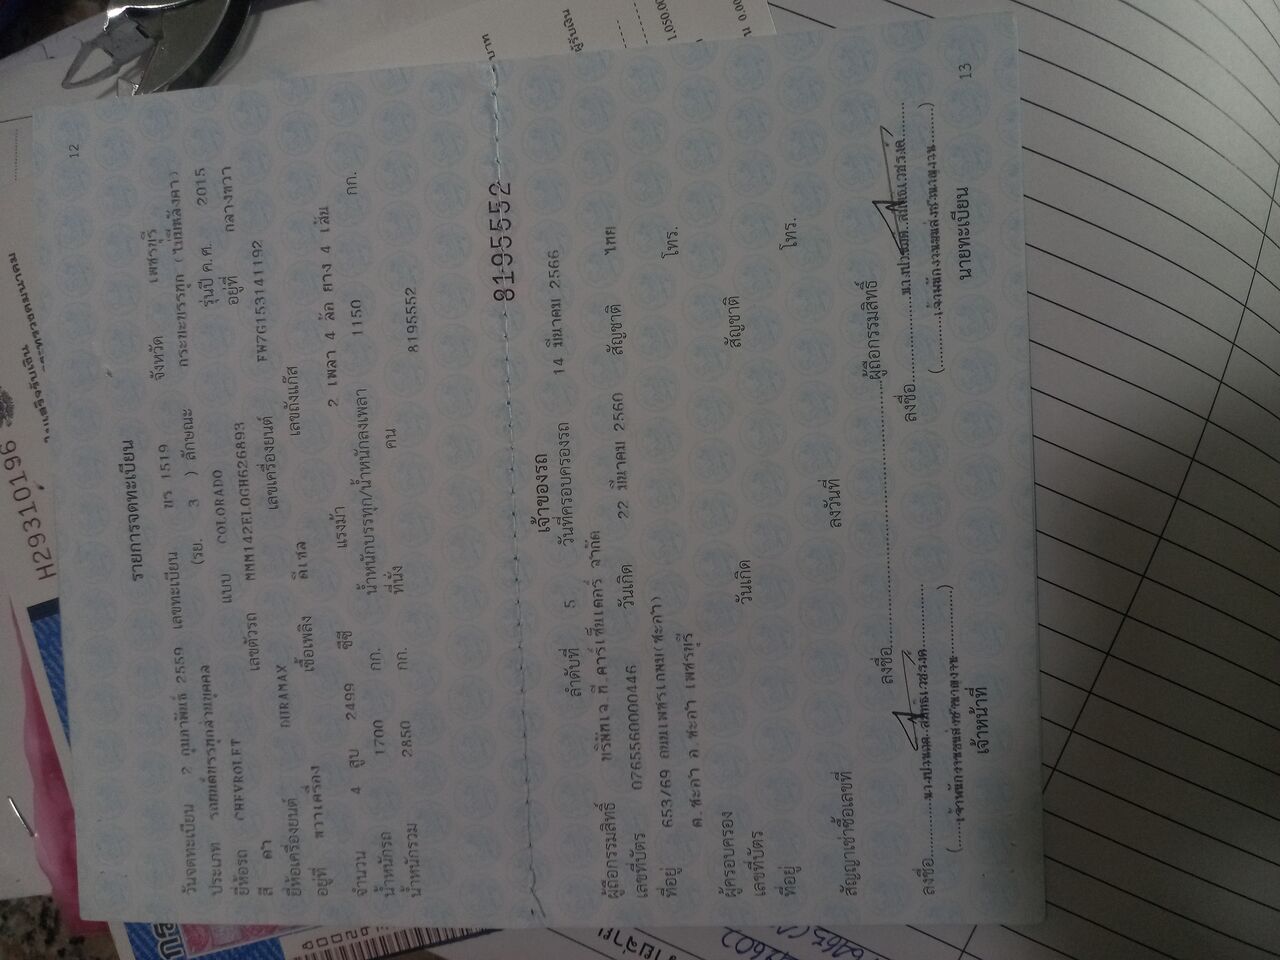 12
รายการจดทะเบียน
วันจดทะเบียน 2 กุมภาพันธ์ 2559 เลขทะเบียน ขร 1519 จังหวัด เพชรบุรี
ประเภท รถยนต์บรรทุกส่วนบุคคล (รย. 3 ) ลักษณะ กระบะบรรทุก (ไม่มีหลังคา)
ยี่ห้อรถ CHEVROLET แบบ COLORADO รุ่นปี ค.ศ. 2015
สี ดำ เลขตัวรถ MMM142ELOGH626893 อยู่ที่ กลางขวา
ยี่ห้อเครื่องยนต์ DURAMAX เลขเครื่องยนต์ FW7G153141192
อยู่ที่ ขวาเครื่อง เชื้อเพลิง ดีเซล เลขถังแก๊ส
จำนวน 4 สูบ 2499 ซีซี แรงม้า 2 เพลา 4 ล้อ ยาง 4 เส้น
น้ำหนักรถ 1700 กก. น้ำหนักบรรทุก/น้ำหนักลงเพลา 1150 กก.
น้ำหนักรวม 2850 กก. ที่นั่ง คน 8195552
8195552
เจ้าของรถ
ลำดับที่ 5 วันที่ครอบครองรถ 14 มีนาคม 2566
ผู้ถือกรรมสิทธิ์ บริษัทเจ.ที.คาร์เซ็นเตอร์ จำกัด
เลขที่บัตร 0765560000446 วันเกิด 22 มีนาคม 2560 สัญชาติ ไทย
ที่อยู่ 653/69 ถนนเพชรเกษม(ชะอำ) โทร.
ต.ชะอำ อ.ชะอำ เพชรบุรี
ผู้ครอบครอง
เลขที่บัตร วันเกิด สัญชาติ
ที่อยู่ โทร.
สัญญาเช่าซื้อเลขที่ ลงวันที่
ลงชื่อ ผู้ถือกรรมสิทธิ์
ลงชื่อ ลงชื่อ
เจ้าหน้าที่ นายทะเบียน
13
H29310196
ใบเสร็จรับเงิน
บาท
ผู้รับเงิน
1,050.00
0.00